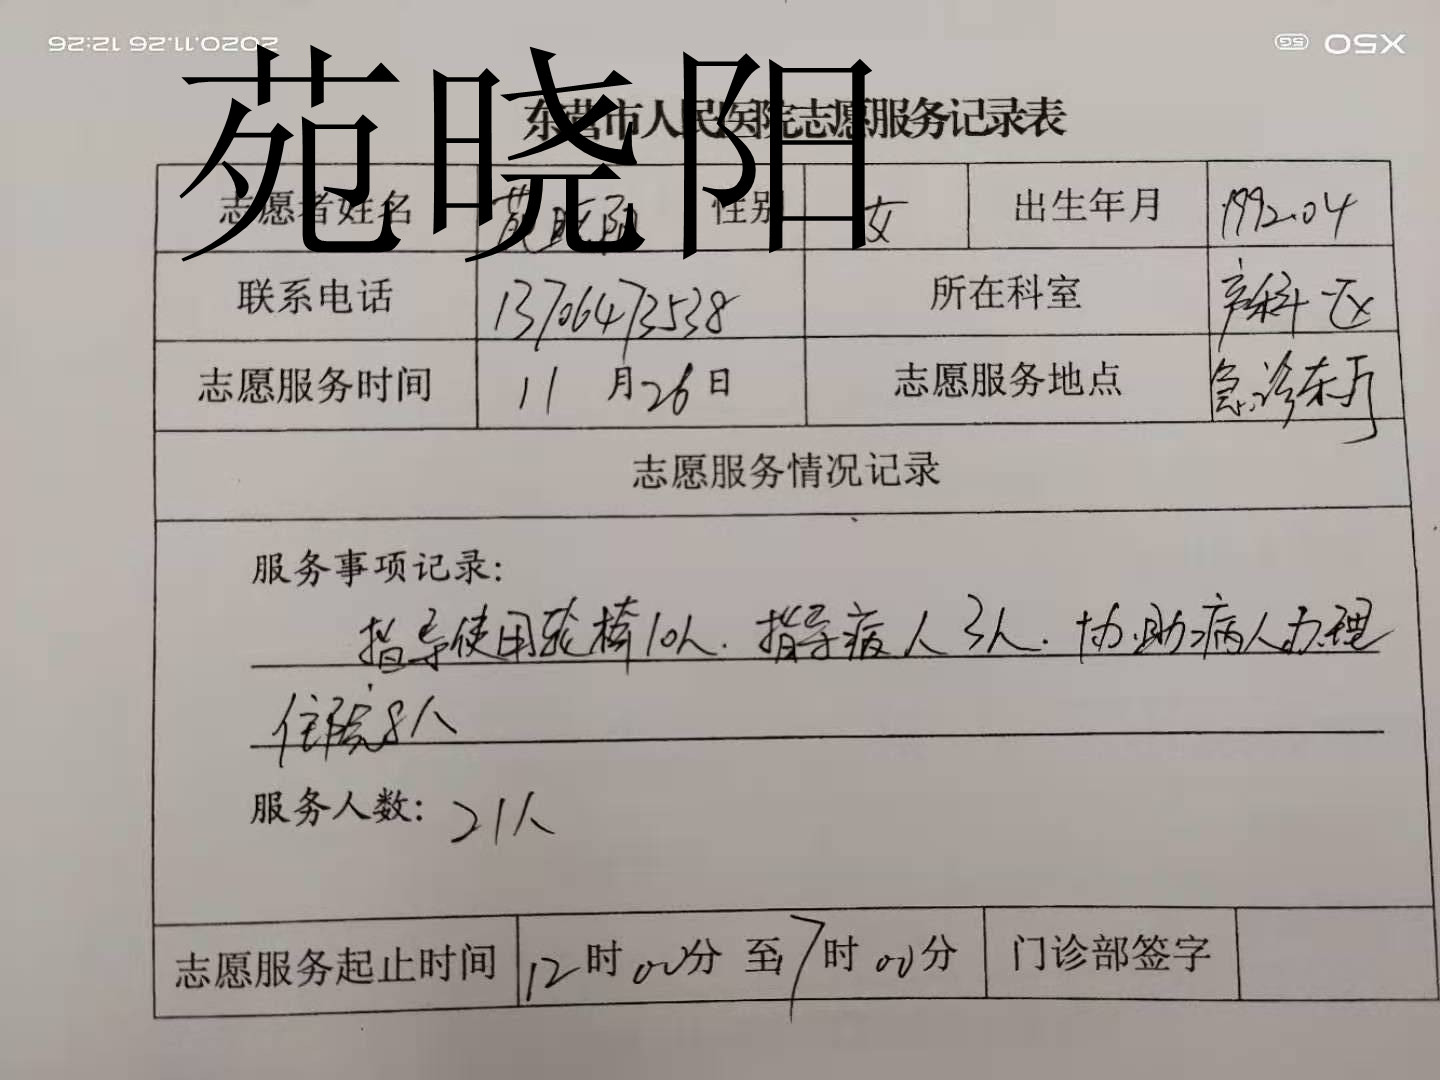 2020.11.26 12:26
X50 5G
苑晓阳
东营市人民医院志愿服务记录表
志愿者姓名 性别 女 出生年月 1992.04
联系电话 13706473538 所在科室 产科一区
志愿服务时间 11月26日 志愿服务地点 急诊东厅
志愿服务情况记录
服务事项记录:
指导使用轮椅10人.指导病人3人.协助病人办理
住院8人
服务人数: 21人
志愿服务起止时间 12时00分 至17时00分 门诊部签字